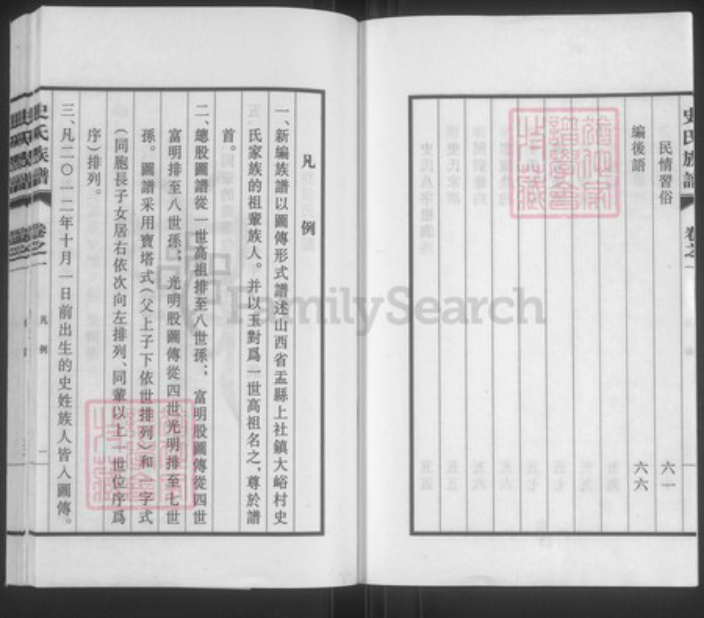 史氏族譜
卷之一
民情習俗 六一
編後語 六六
凡例
一、新編族譜以圖傳形式譜述山西省盂縣上社鎮大峪村史
氏家族的祖輩族人。并以玉對爲一世高祖名之，尊於譜
首。
二、總股圖譜從一世高祖排至八世孫；富明股圖傳從四世
富明排至八世孫；光明股圖傳從四世光明排至七世
孫。圖譜采用寶塔式（父上子下依世排列）和一字式
（同胞長子女居右依次向左排列、同輩以上一世位序爲
序）排列。
三、凡二〇一二年十月一日前出生的史姓族人皆入圖傳。
史氏族譜
卷之一
凡例
一
FamilySearch